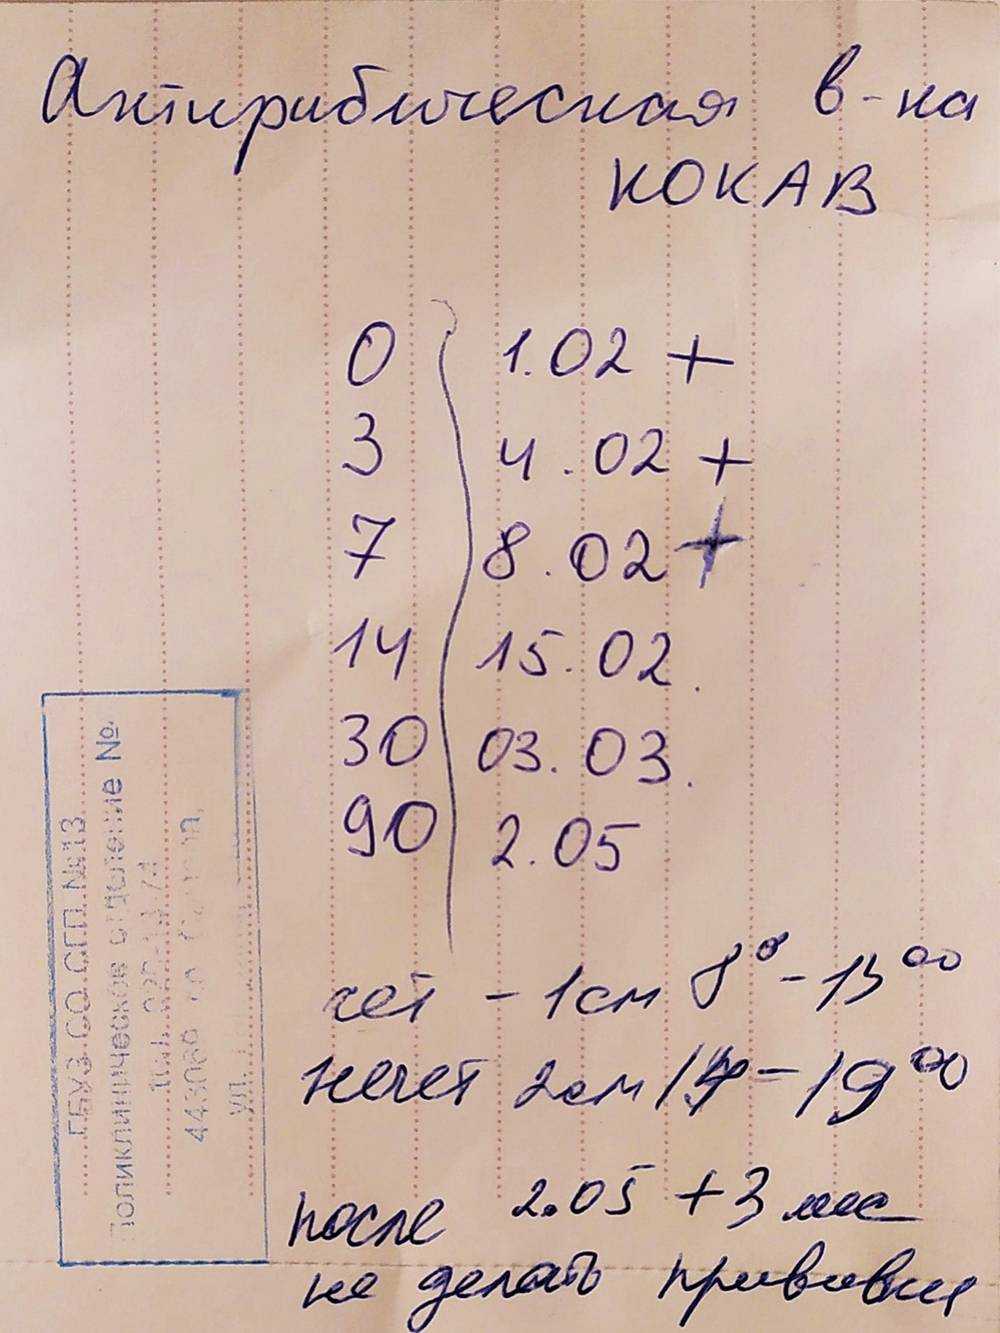 Антирабическая в-на
КОКАВ
0 1.02 +
3 4.02 +
7 8.02 +
14 15.02.
30 03.03.
90 2.05
чет - 1см 8⁰ - 13⁰⁰
нечет 2см - 19⁰⁰
после 2.05 + 3 мес
не делать прививки
ГБУЗ СО СГП №13
Поликлиническое отделение №